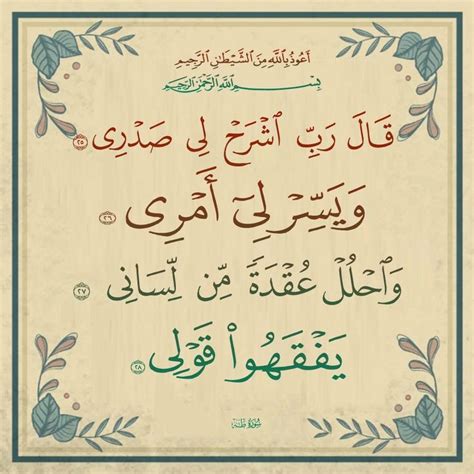 أَعُوذُ بِٱللَّهِ مِنَ ٱلشَّيْطَـٰنِ ٱلرَّجِيمِ
بِسْمِ ٱللَّهِ ٱلرَّحْمَـٰنِ ٱلرَّحِيمِ
قَالَ رَبِّ ٱشْرَحْ لِى صَدْرِى ٢٥
وَيَسِّرْ لِىٓ أَمْرِى ٢٦
وَٱحْلُلْ عُقْدَةً مِّن لِّسَانِى ٢٧
يَفْقَهُوا۟ قَوْلِى ٢٨
سُورَةُ طه